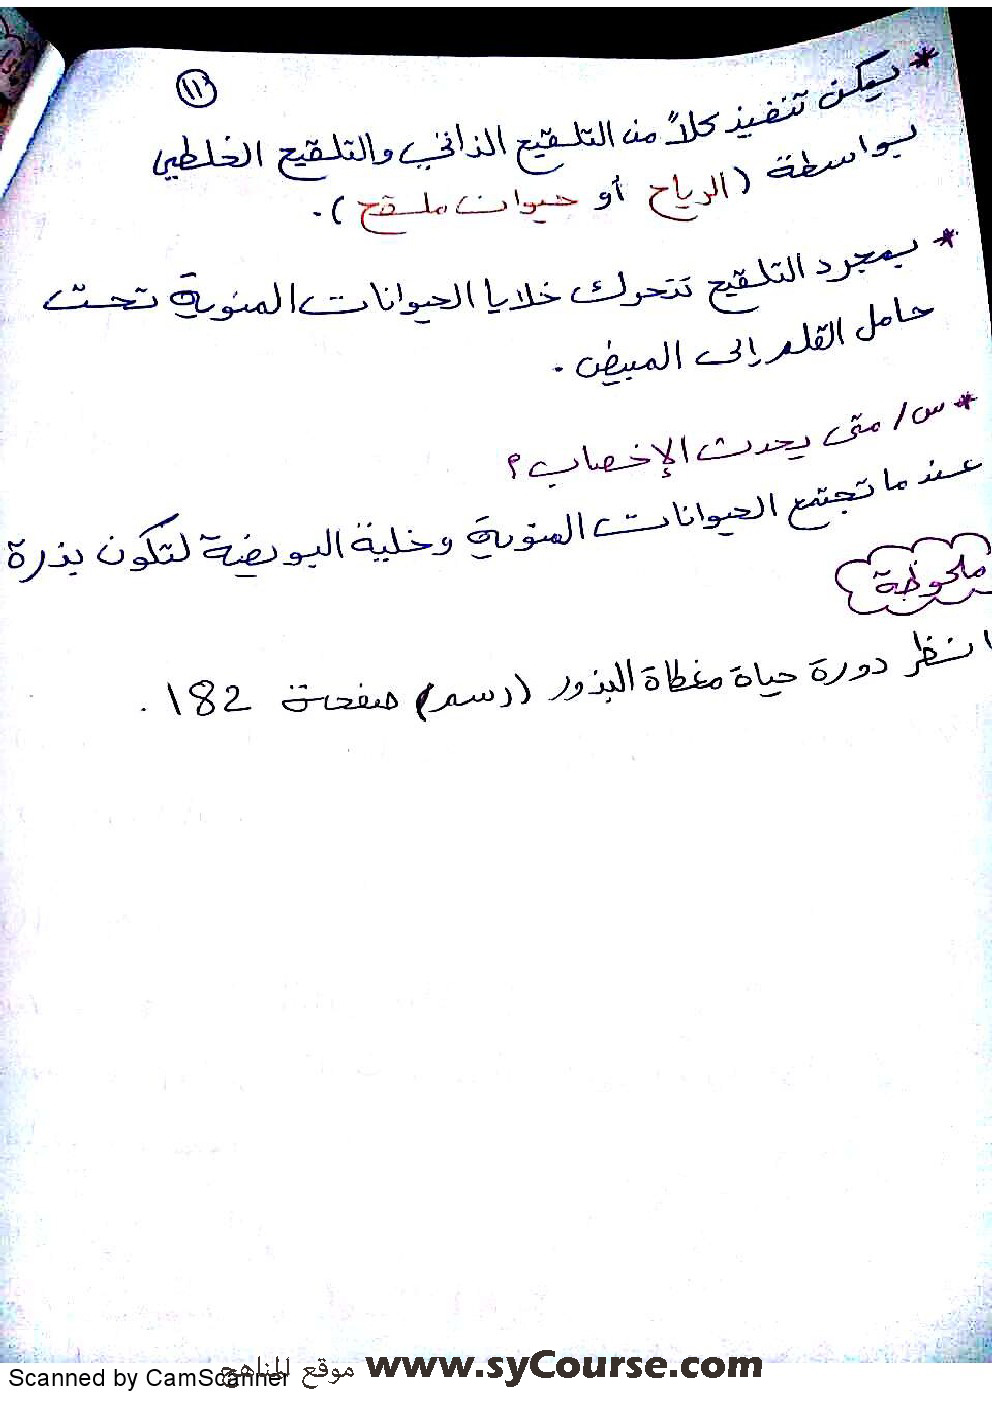 ١١
* يمكن تنفيذ كلاً من التلقيح الذاتي والتلقيح الخلطي
بواسطة (الرياح أو حيوان ملقح).
* بمجرد التلقيح تتحرك خلايا الحيوانات المنوية تحت
حامل القلم إلى المبيض.
* س/ متى يحدث الإخصاب؟
عندما تجتمع الحيوانات المنوية وخلية البويضة لتكون بذرة
ملحوظة
انظر دورة حياة مغطاة البذور (رسم) صفحة 182.
موقع المناهج www.syCourse.com
Scanned by CamScanner